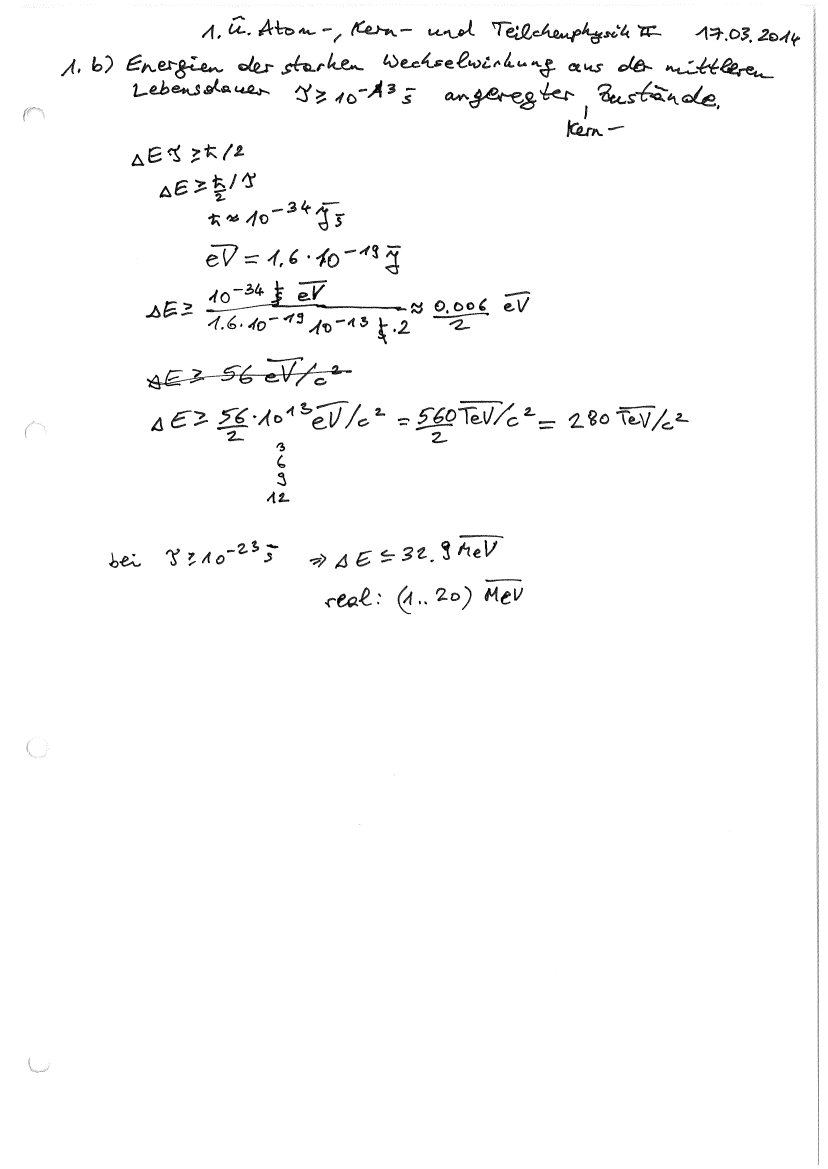 1. Ü. Atom-, Kern- und Teilchenphysik II 17.03.2014
1. b) Energien der starken Wechselwirkung aus der mittleren
Lebensdauer τ ≥ 10⁻¹³ s̄ angeregter Zustände.
Kern-
ΔE τ ≥ ħ/2
ΔE ≥ ħ/2 / τ
ħ ≈ 10⁻³⁴ J̄s̄
e̅V̅ = 1.6 · 10⁻¹⁹ J̄
ΔE ≥ 10⁻³⁴ e̅V̅ / 1.6 · 10⁻¹⁹ 10⁻¹³ · 2 ≈ 0.006/2 e̅V̅
ΔE ≥ 56 e̅V̅/c²
ΔE ≥ 56/2 · 10¹³ e̅V̅/c² = 560/2 T̅e̅V̅/c² = 280 T̅e̅V̅/c²
3
6
9
12
bei τ ≥ 10⁻²³ s̄ ⇒ ΔE ≤ 32.9 M̅e̅V̅
real: (1..20) M̅e̅V̅